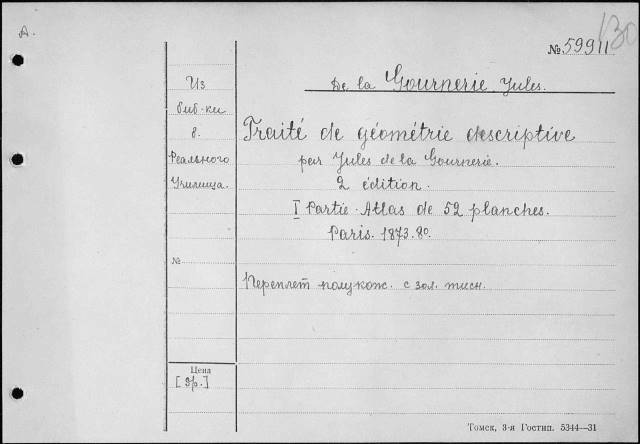 130
А.
№ 59911
De la Gournerie, Jules.
Из
биб-ки
б.
Реального
Училища.
Traité de géométrie descriptive
par Jules de la Gournerie.
2 édition.
I Partie - Atlas de 52 planches.
Paris. 1873. 8º.
№
Переплет полукож. с зол. тисн.
Цена
[ 3р. ]
Томск, 3-я Гостип. 5344—31